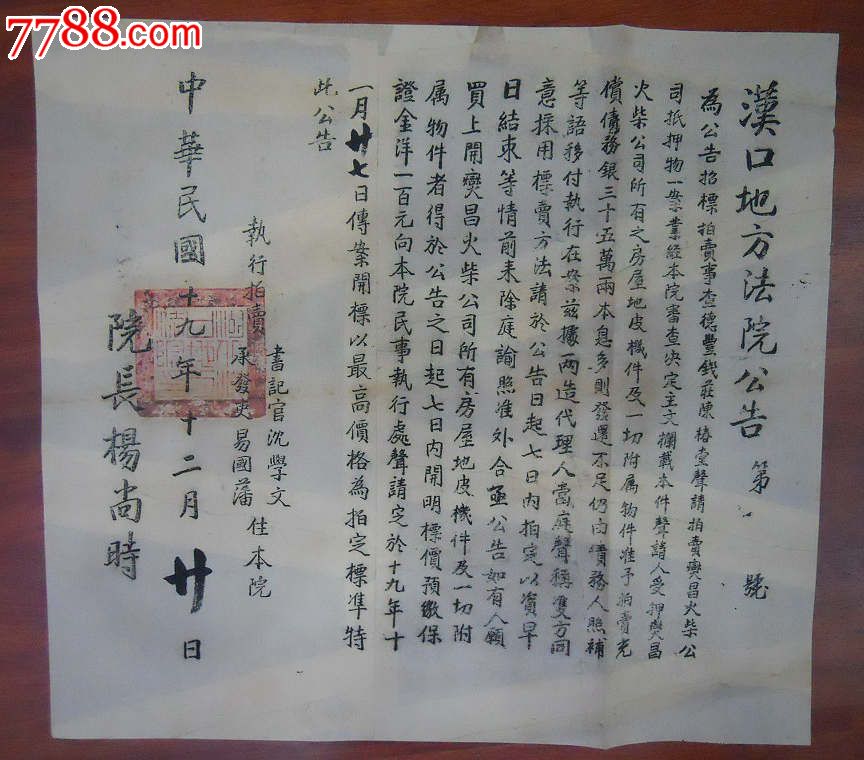 7788.com
漢口地方法院公告 第 號
為公告招標拍賣事查德豐錢莊陳椿堂聲請拍賣爕昌火柴公
司抵押物一案業經本院審查決定主文欄載本件聲請人受押爕昌
火柴公司所有之房屋地皮機件及一切附属物件准予拍賣充
償債務銀三十五萬兩本息多則發還不足仍由債務人照補
等語移付執行在案茲據兩造代理人當庭聲稱雙方同
意採用標賣方法請於公告日起七日內拍定以資早
日結束等情前来除庭諭照准外合亟公告如有人願
買上開爕昌火柴公司所有房屋地皮機件及一切附
属物件者得於公告之日起七日內開明標價預繳保
證金洋一百元向本院民事執行處聲請定於十九年十
一月廿七日傳案開標以最高價格為拍定標準特
此公告
執行拍賣 書記官沈學文
承發吏易國藩 住本院
中華民國十九年十二月廿日
院長楊尚時